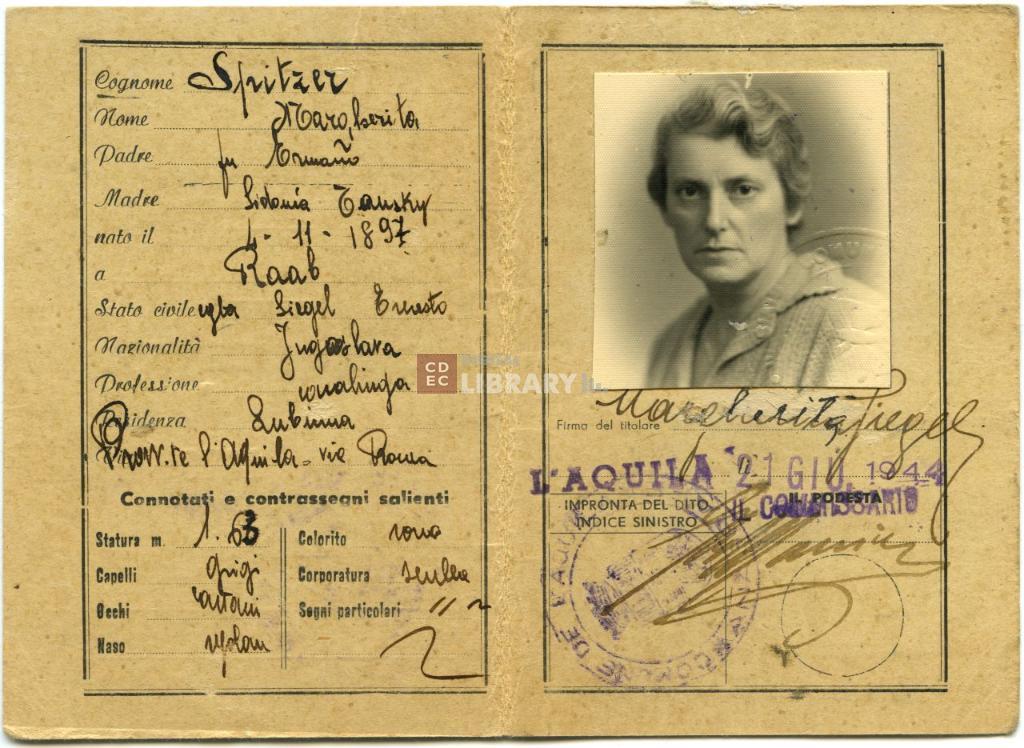 Cognome Spitzer
Nome Margherita
Padre fu Ermanno
Madre Sidonia Tansky
nato il 4-11-1897
a Raab
Stato civile Siegel Ernesto
Nazionalità Jugoslava
Professione casalinga
Residenza Lubiana
Provv.te l'Aquila - via Roma
Connotati e contrassegni salienti
Statura m. 1.63
Capelli grigi
Occhi castani
Naso regolare
Colorito roseo
Corporatura snella
Segni particolari //
CDEC DIGITAL LIBRARY.it
Firma del titolare Margherita Siegel
L'AQUILA 21 GIU. 1944
IMPRONTA DEL DITO
INDICE SINISTRO
IL PODESTÀ
IL COMMISSARIO
COMUNE DE L'AQUILA